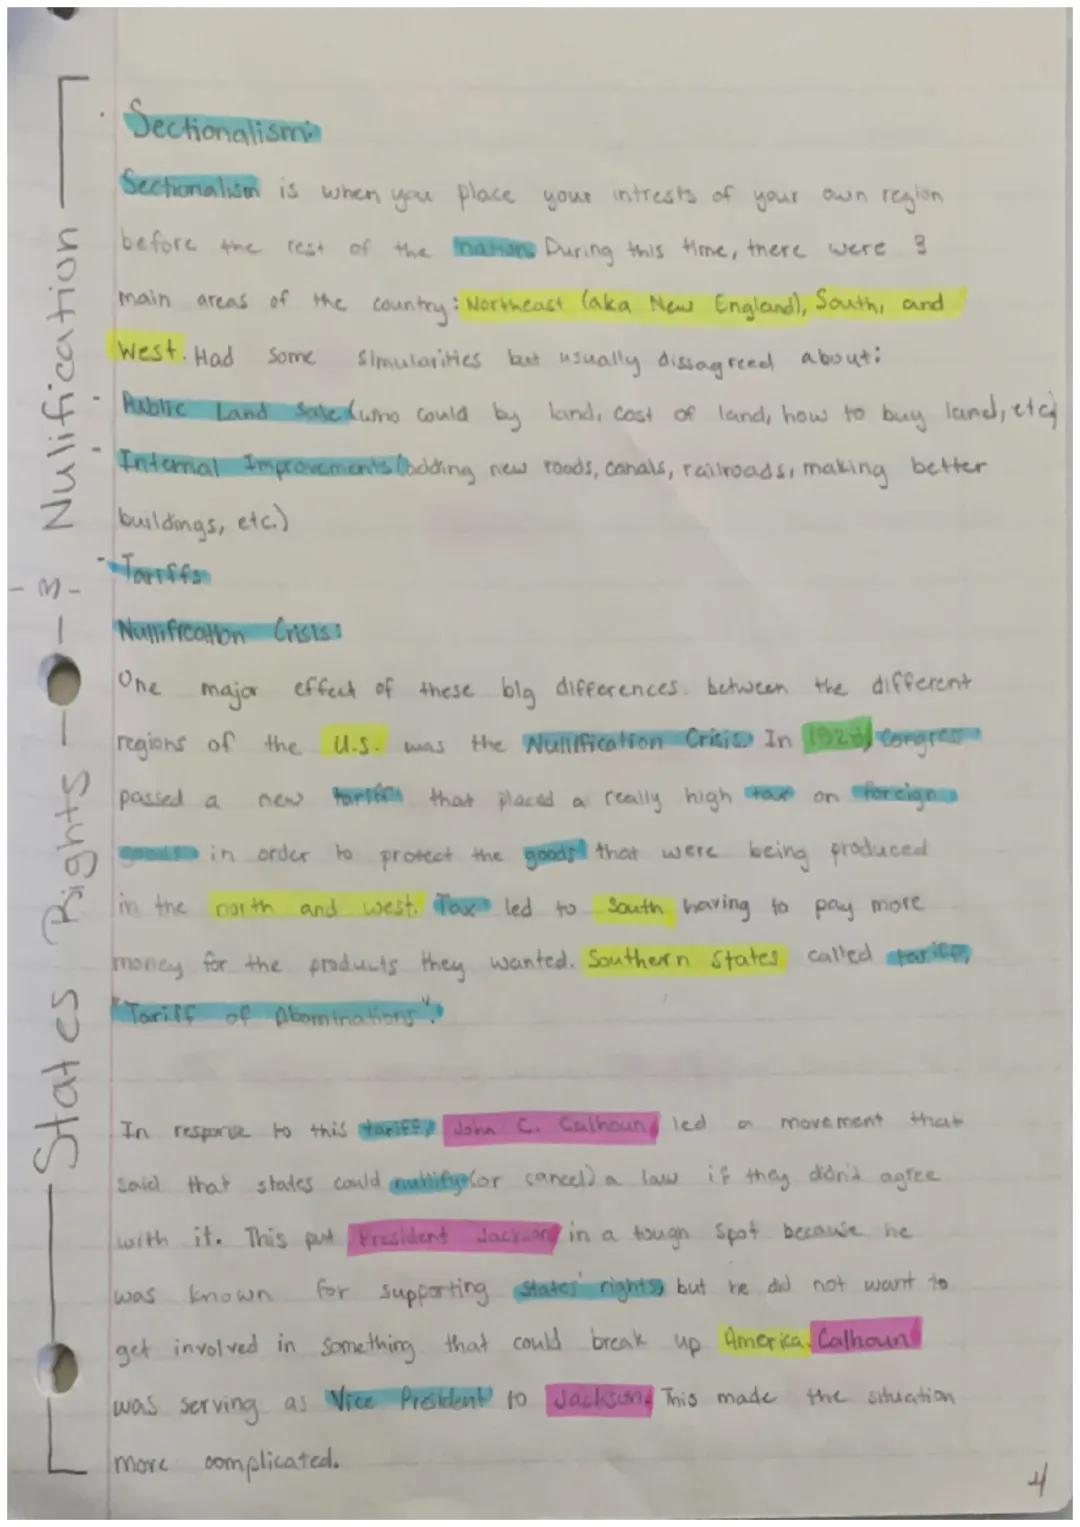 States Rights - 3 - Nulification
Sectionalism:
Sectionalism is when you place your intrests of your own region
before the rest of the nation. During this time, there were 3
main areas of the country: Northeast (aka New England), South, and
West. Had some simularities but usually dissagreed about:
- Public Land Sale (who could by land, cost of land, how to buy land, etc)
- Internal Improvements (adding new roads, canals, railroads, making better
buildings, etc.)
- Tariffs
Nullification Crisis:
One major effect of these big differences between the different
regions of the U.S. was the Nullification Crisis. In 1828, Congress
passed a new tariff that placed a really high tax on foreign
goods in order to protect the goods that were being produced
in the north and west. Tax led to South having to pay more
money for the products they wanted. Southern States called tariff,
"Tariff of Abominations".
In response to this tariff, John C. Calhoun led a movement that
said that states could nullify (or cancel) a law if they didn't agree
with it. This put President Jackson in a tough spot because he
was known for supporting states' rights, but he did not want to
get involved in something that could break up America. Calhoun
was serving as Vice President to Jackson. This made the situation
more complicated.
4